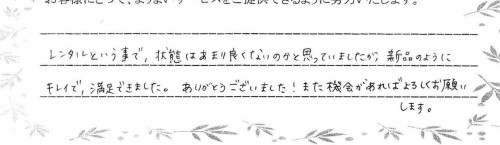 お客様にとって、よりよいサービスをご提供できるように努力いたします。
レンタルという事で、状態はあまり良くないのかと思っていましたが、新品のように
キレイで、満足できました。ありがとうございました！また機会があればよろしくお願い
します。